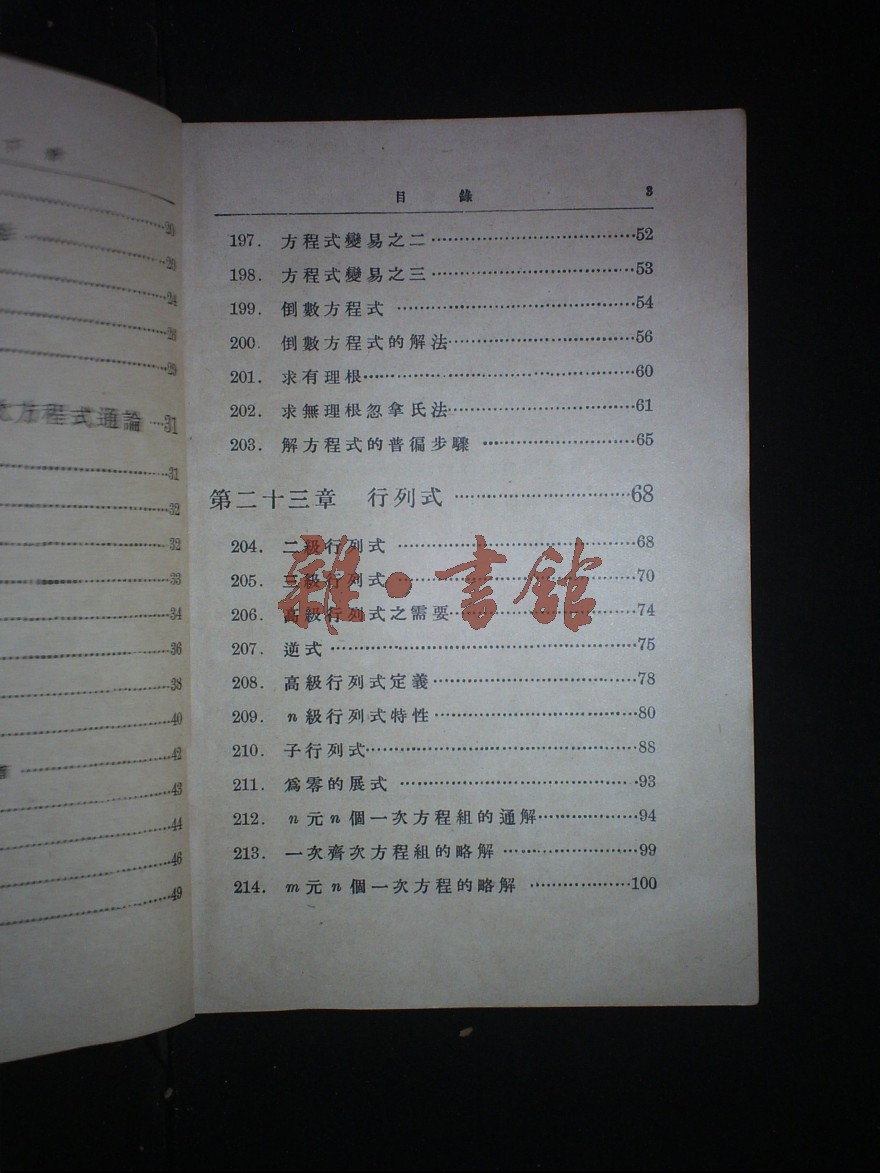 20
20
24
28
29
方程式通論…31
31
32
32
33
34
36
38
40
42
43
44
46
49
目 錄 3
197. 方程式變易之二…52
198. 方程式變易之三…53
199. 倒數方程式…54
200. 倒數方程式的解法…56
201. 求有理根…60
202. 求無理根忽拿氏法…61
203. 解方程式的普徧步驟…65
第二十三章 行列式…68
204. 二級行列式…68
205. 三級行列式…70
206. 高級行列式之需要…74
207. 逆式…75
208. 高級行列式定義…78
209. n級行列式特性…80
210. 子行列式…88
211. 爲零的展式…93
212. n元n個一次方程組的通解…94
213. 一次齊次方程組的略解…99
214. m元n個一次方程的略解…100
雜·書館